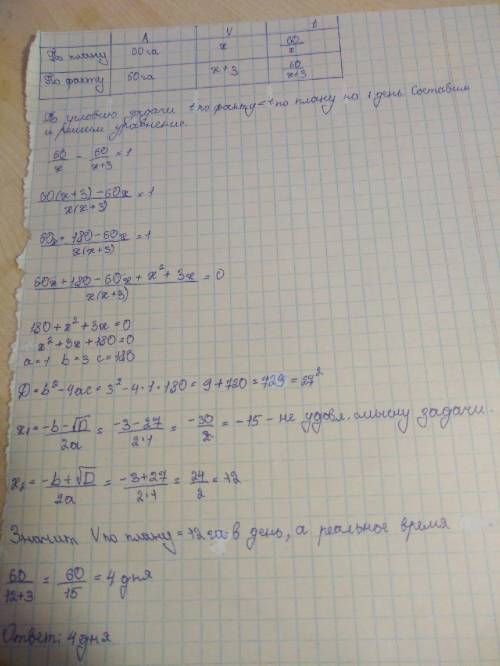 A V t
По плану 60га x 60/x
По факту 60га x+3 60/x+3
По условию задачи t по факту < t по плану на 1 день. Составим
и решим уравнение.
60/x - 60/x+3 = 1
60(x+3)-60x/x(x+3) = 1
60x+180-60x/x(x+3) = 1
60x+180-60x+x²+3x/x(x+3) = 0
180+x²+3x=0
x²+3x+180=0
a=1 b=3 c=180
D=b²-4ac=3²-4·1·180=9+720=729=27²
x₁=-b-√D/2a=-3-27/2·1=-30/2=-15-не удовл. смыслу задачи.
x₂=-b+√D/2a=-3+27/2·1=24/2=12
Значит V по плану=12га в день, а реальное время
60/12+3=60/15=4 дня
Ответ: 4 дня